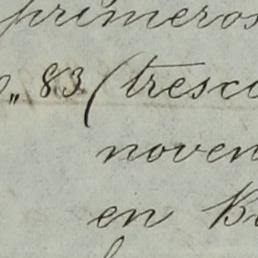 primeros
83 (tresco
noven
en B